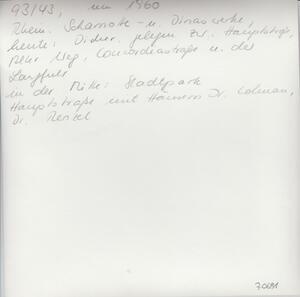 93/43, um 1960
Rhein. Schamotte- u. Dinaswerke,
heute: Didier, gelegen zw. Hauptstraße,
Neue Weg, Concordiastraße u. der
in der Mitte: Stadtpark
Hauptstraße mit Häusern Dr. Lohman,
Dr.
70691